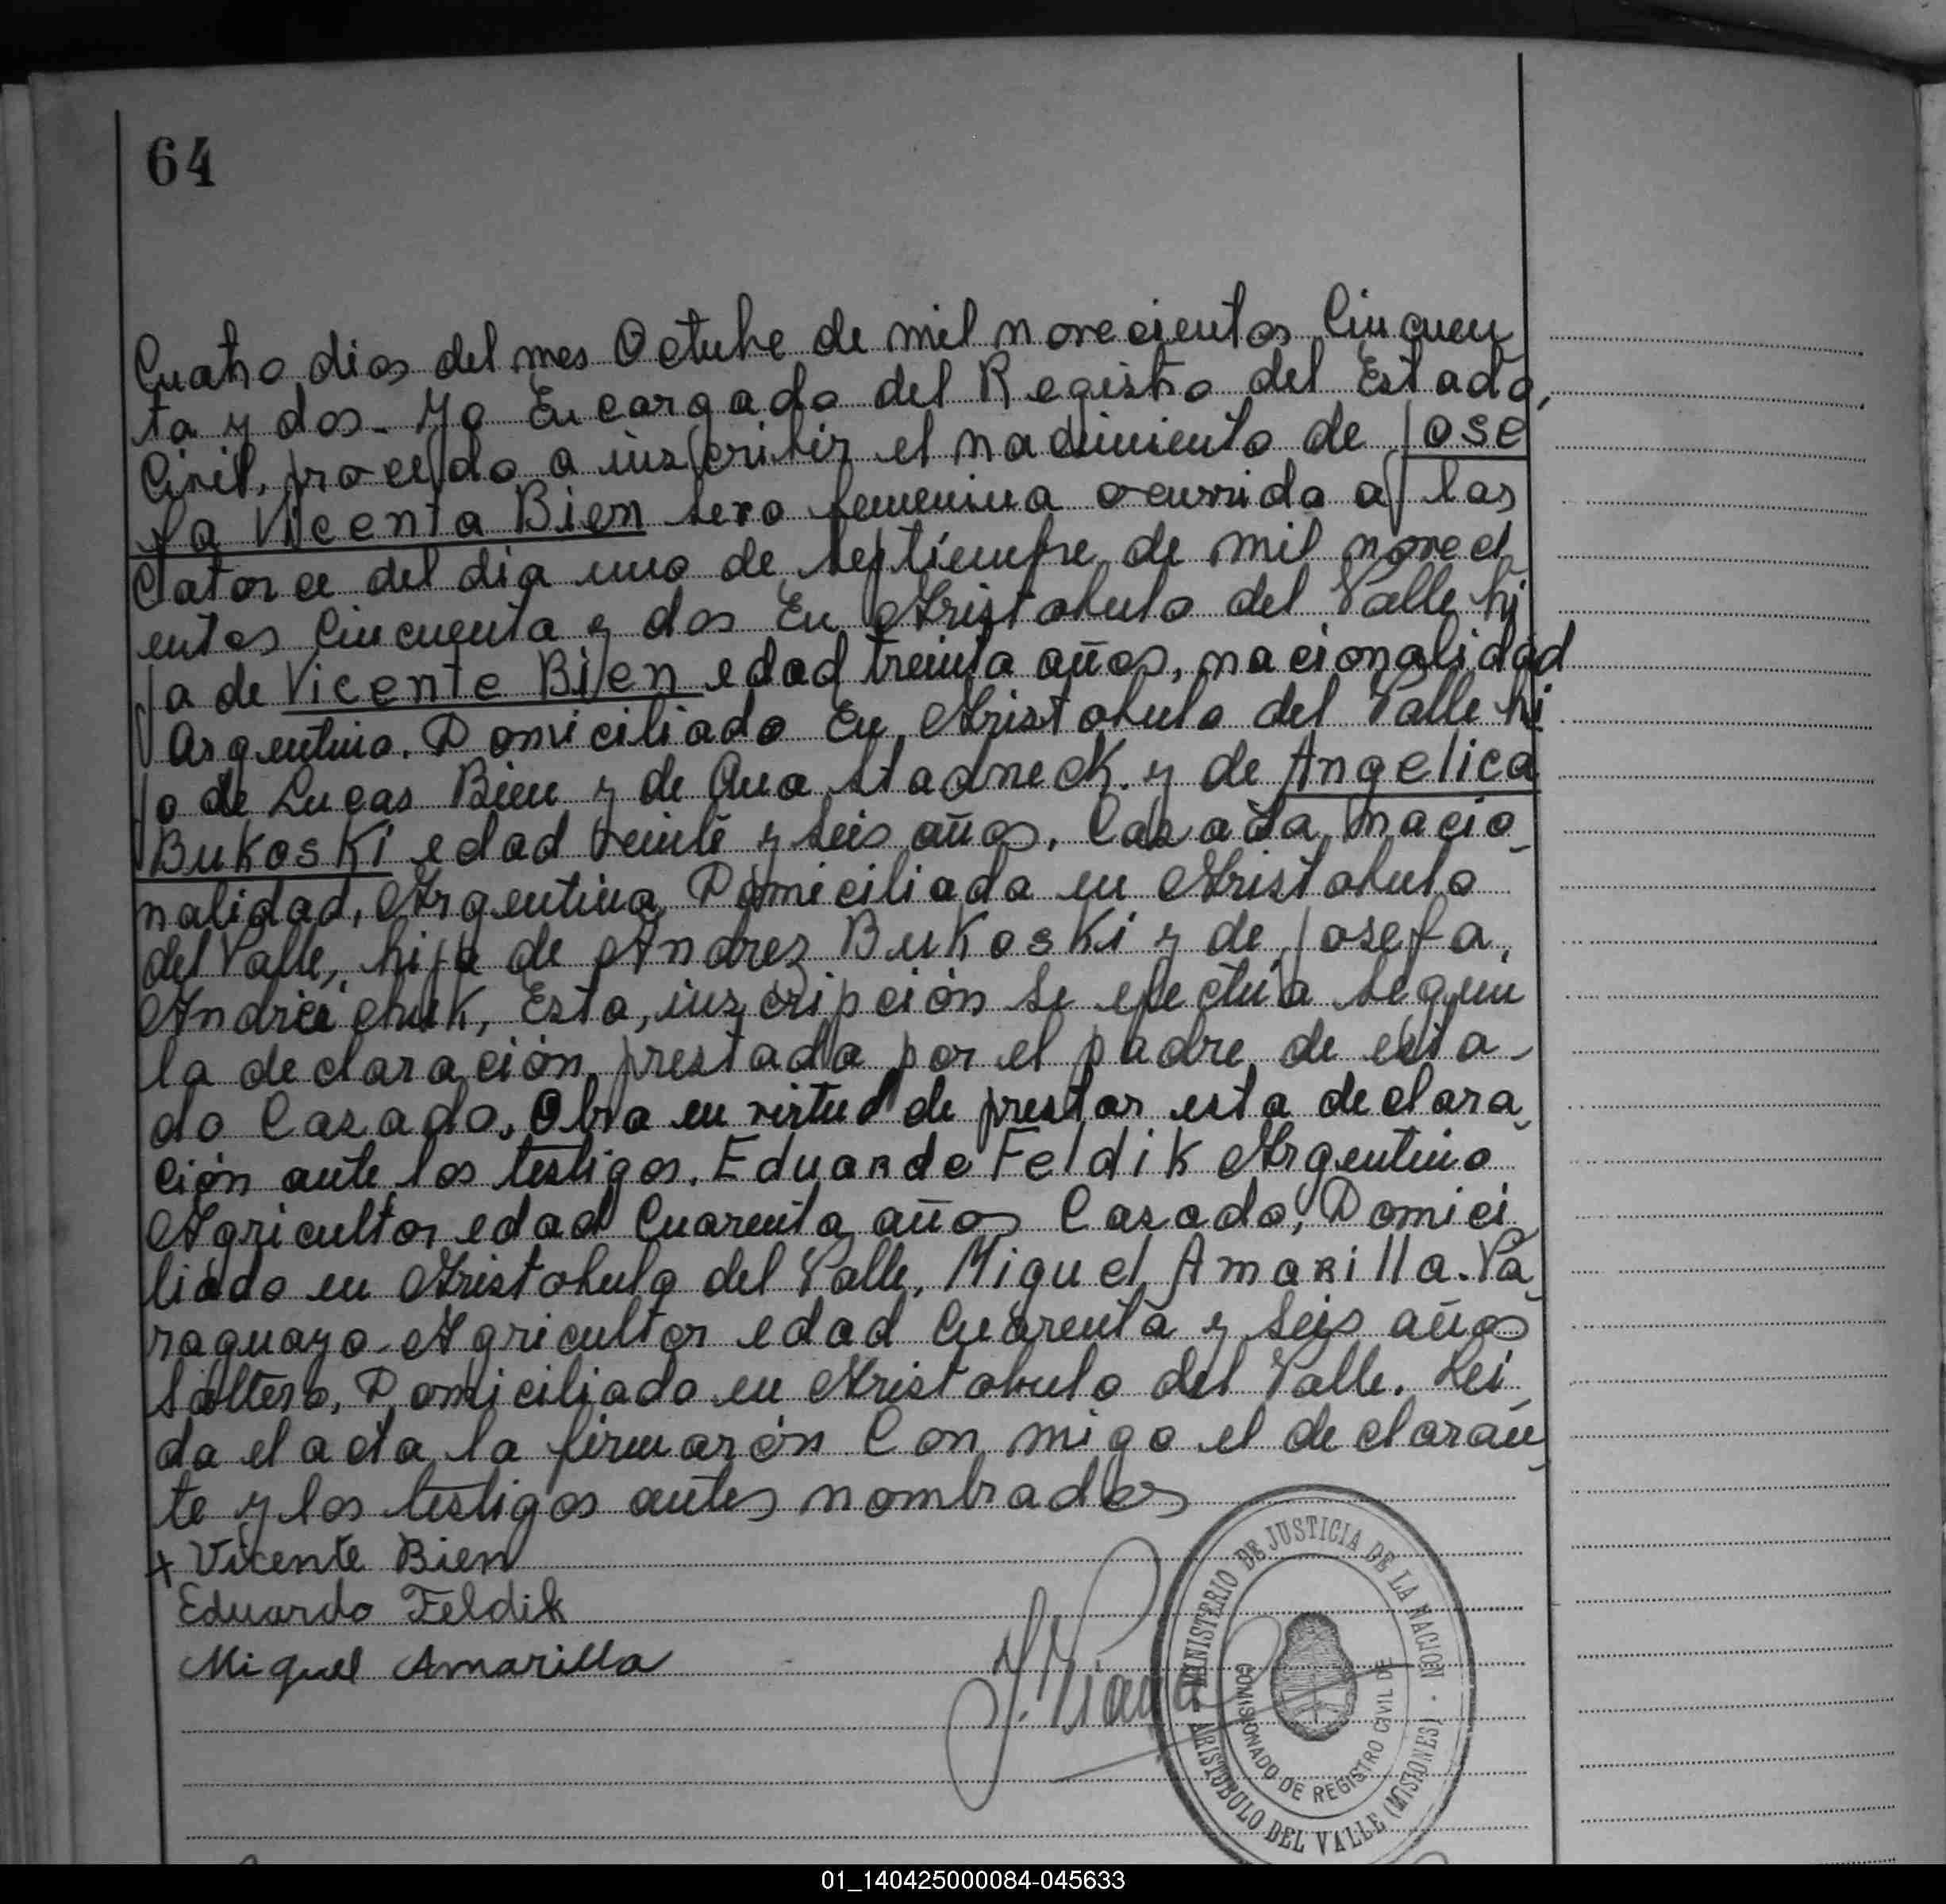 64
Cuatro dias del mes Octubre de mil novecientos Cincuen
ta y dos. Yo Encargado del Registro del Estado,
Civil, procedo a inscribir el nacimiento de Jose
fa Vicenta Bien sexo femenina ocurrido a las
Catorce del dia uno de septiembre de mil noveci
entos Cincuenta y dos En Aristobulo del Valle hi
ja de Vicente Bien edad treinta años, nacionalidad
Argentino. Domiciliado En Aristobulo del Valle hi
jo de Lucas Bien y de Ana Stadneck. y de Angelica
Bukoski edad veinte y seis años. Casada, nacio_
nalidad, Argentina Domiciliada en Aristobulo
del Valle, hija de Andrez Bukoski y de Josefa,
chuk, Esta, inscripción se efectúa segun
la declaración prestada por el padre de esta_
do Casado. Obra en virtud de prestar esta declara_
ción ante los testigos. Eduardo Feldik Argentino
Agricultor edad Cuarenta años Casado, Domici
liado en Aristobulo del Valle, Miguel Amarilla. Pa_
raguayo. Agricultor edad Cuarenta y seis años
soltero, Domiciliado en Aristobulo del Valle. Lei_
da el acta la firmarón Con migo el declaran_
te y los testigos antes nombrados
+ Vicente Bien
Eduardo Feldik
Miguel Amarilla
MINISTERIO DE JUSTICIA DE LA NACION
COMISIONADO DE REGISTRO CIVIL DE
ARISTOBULO DEL VALLE (MISIONES)
01_140425000084-045633